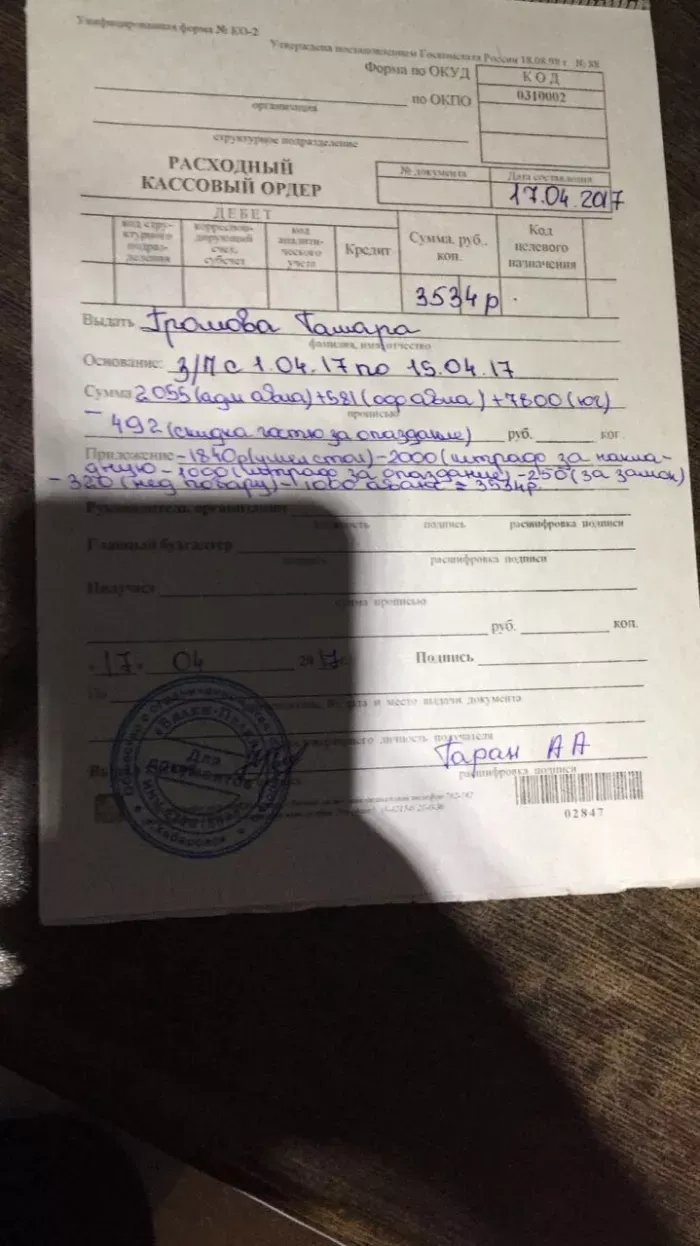 Унифицированная форма № КО-2
Утверждена постановлением Госкомстата России 18.08.98 г. № 88
КОД
Форма по ОКУД 0310002
по ОКПО
организация
структурное подразделение
РАСХОДНЫЙ КАССОВЫЙ ОРДЕР
№ документа Дата составления
17.04.2017
ДЕБЕТ
код структурного подразделения корреспондирующий счет, субсчет код аналитического учета Кредит Сумма, руб., коп. Код целевого назначения
3534р
Выдать Громова Тамара
фамилия, имя, отчество
Основание: З/П с 1.04.17 по 15.04.17
Сумма 2055(адм авиа)+581(оф авиа)+7800(юг)
прописью
- 492(скидка гостю за опоздание) руб. коп.
Приложение -1840р( стол) -2000(штраф за накла-
дную -1000(штраф за опоздание) -250(за замок)
- 320(нед повару) - 1000 аванс = 3534р.
Руководитель организации
должность подпись расшифровка подписи
Главный бухгалтер
подпись расшифровка подписи
Получил
сумма прописью
руб. коп.
"17" 04 2017г. Подпись
По
дата и место выдачи документа
личность получателя
Таран АА
расшифровка подписи
Для документов
г. Хабаровск
02847